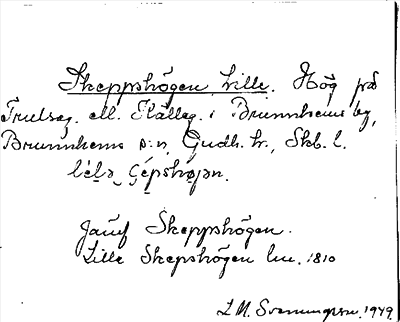 Skeppshögen, Lille. Hög på
Trulsag. ell. Källag. i Brunnhems by,
Brunnhems s:n, Gudh. hr., Skb. l.
Jämf Skeppshögen.
Lille Skepshögen lm. 1810
L M. Svenungsson. 1949.